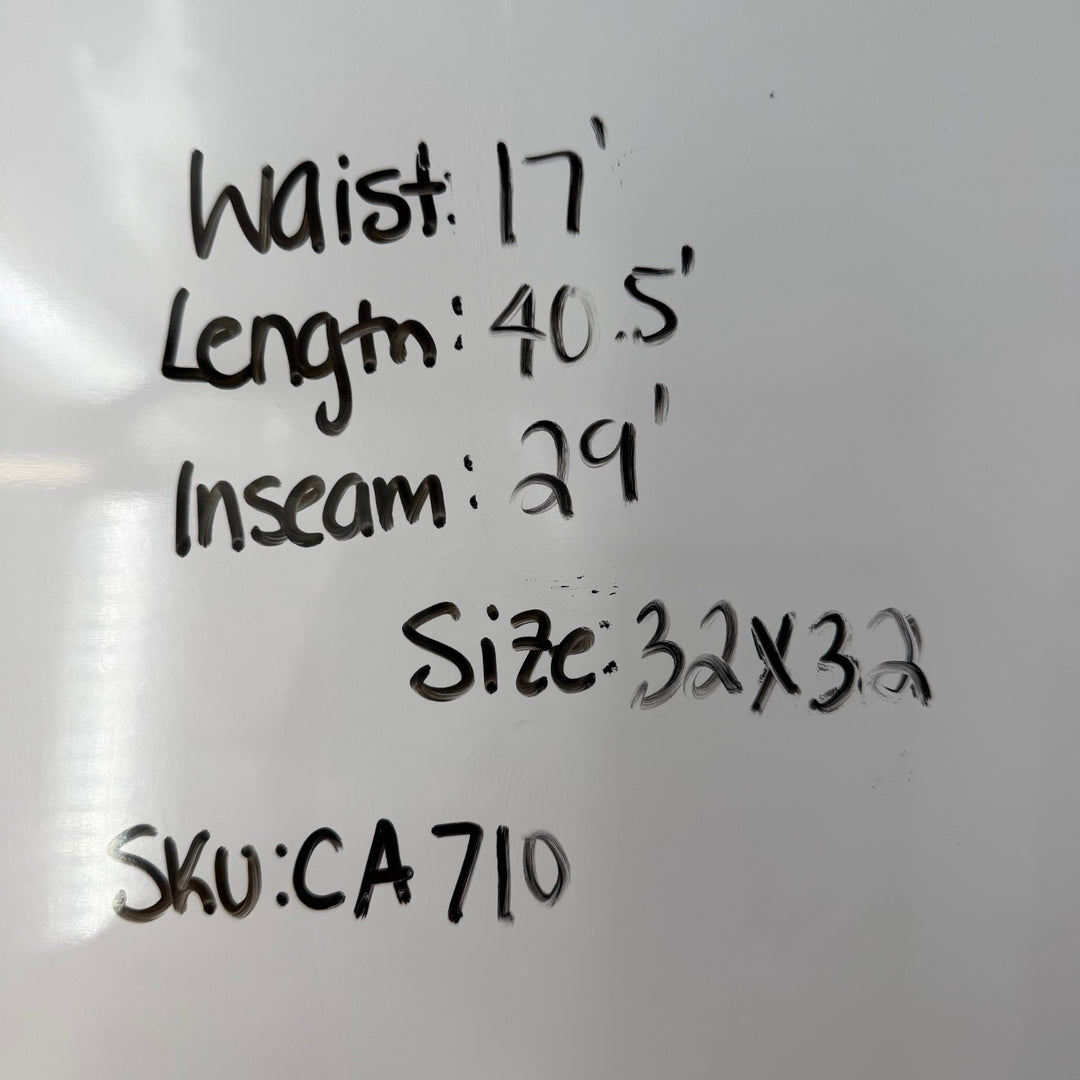 Waist: 17'
Length: 40.5'
Inseam: 29'
Size: 32x32
SKU: CA710